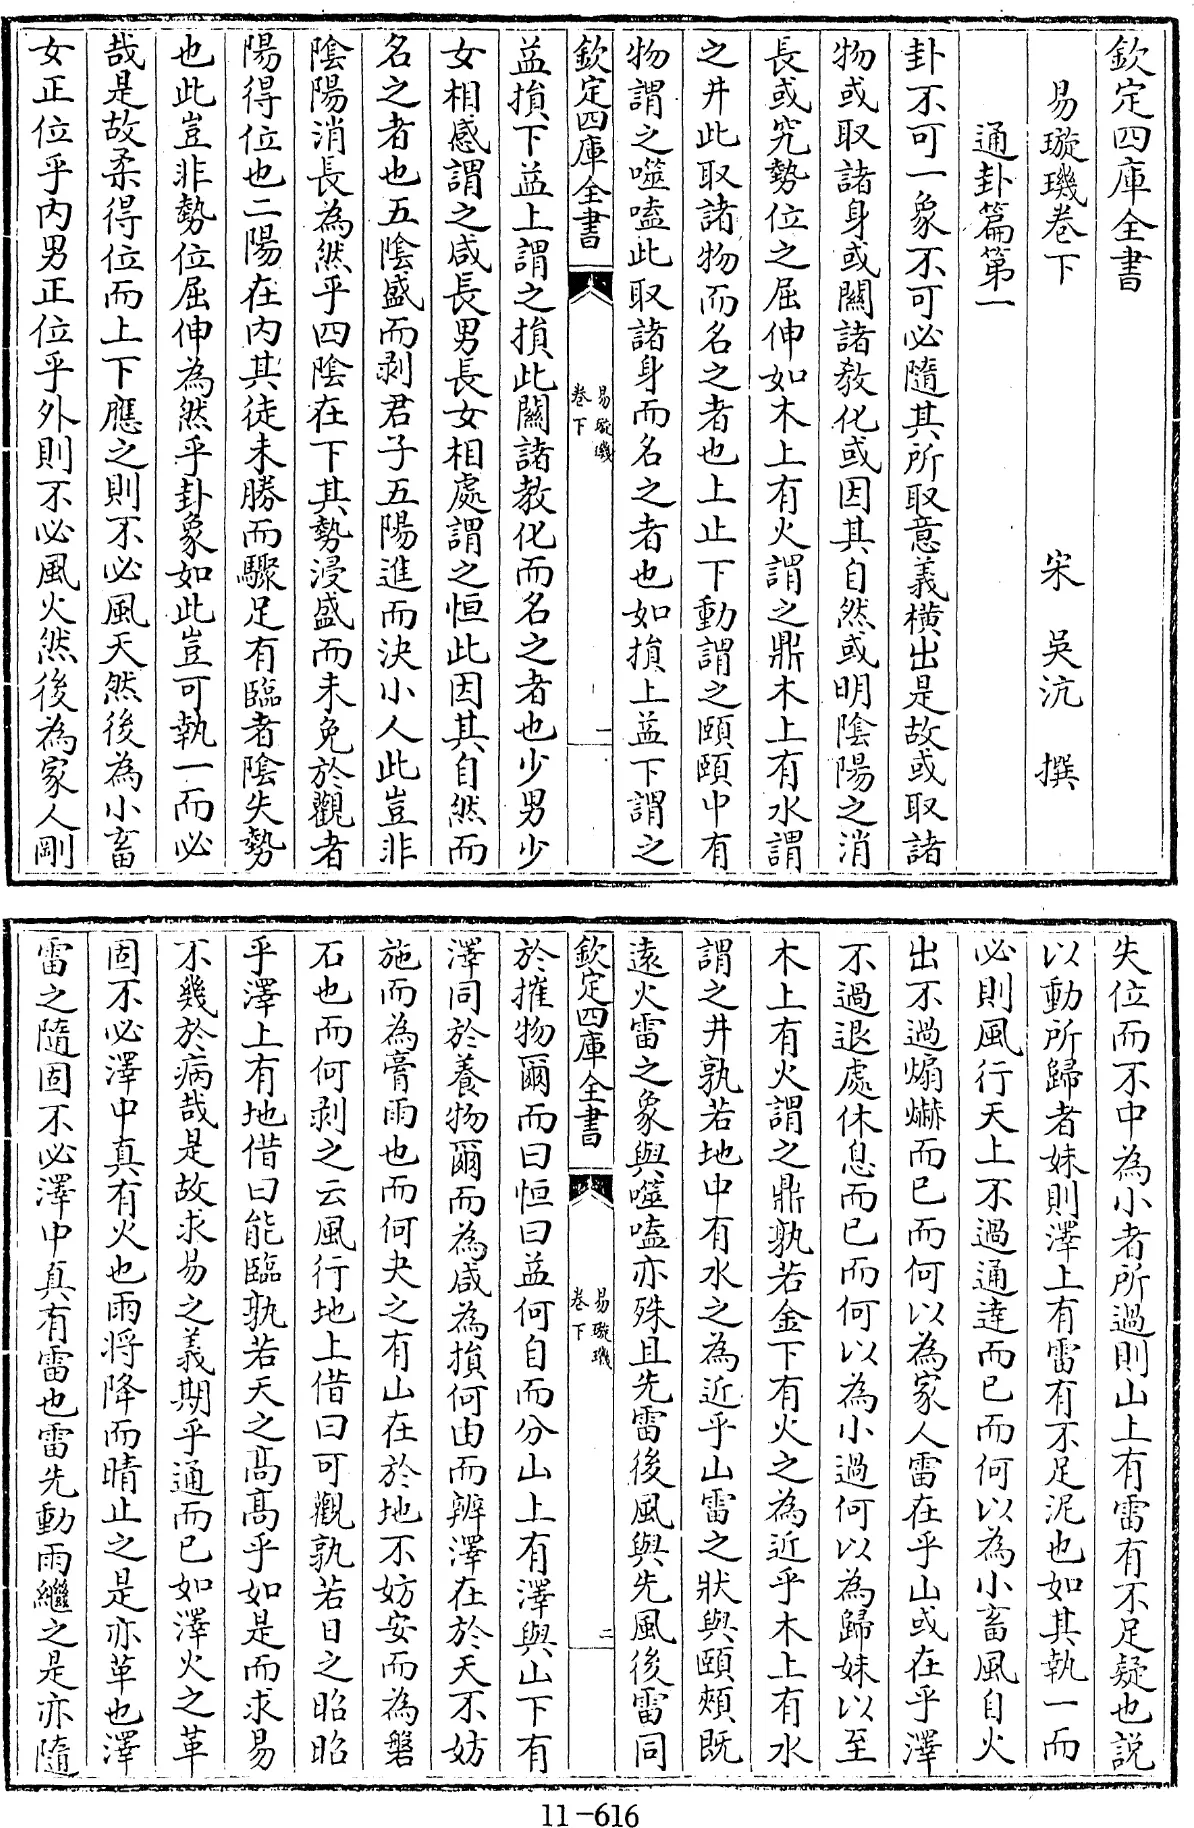 欽定四庫全書
易璇璣卷下　宋　吳沆　撰
通卦篇第一
卦不可一象不可必隨其所取意義橫出是故或取諸
物或取諸身或關諸教化或因其自然或明陰陽之消
長或究勢位之屈伸如木上有火謂之鼎木上有水謂
之井此取諸物而名之者也上止下動謂之頤頤中有
物謂之噬嗑此取諸身而名之者也如損上益下謂之
欽定四庫全書
易璇璣
卷下
一
益損下益上謂之損此關諸教化而名之者也少男少
女相感謂之咸長男長女相處謂之恒此因其自然而
名之者也五陰盛而剥君子五陽進而決小人此豈非
陰陽消長為然乎四陰在下其勢浸盛而未免於觀者
陽得位也二陽在内其徒未勝而驟足有臨者陰失勢
也此豈非勢位屈伸為然乎卦象如此豈可執一而必
哉是故柔得位而上下應之則不必風天然後為小畜
女正位乎内男正位乎外則不必風火然後為家人剛
失位而不中為小者所過則山上有雷有不足疑也説
以動所歸者妹則澤上有雷有不足泥也如其執一而
必則風行天上不過通達而已而何以為小畜風自火
出不過煽爀而已而何以為家人雷在乎山或在乎澤
不過退處休息而已而何以為小過何以為歸妹以至
木上有火謂之鼎孰若金下有火之為近乎木上有水
謂之井孰若地中有水之為近乎山雷之狀與頤頰既
遠火雷之象與噬嗑亦殊且先雷後風與先風後雷同
欽定四庫全書
易璇璣
卷下
二
於摧物爾而曰恒曰益何自而分山上有澤與山下有
澤同於養物爾而為咸為損何由而辨澤在於天不妨
施而為膏雨也而何夬之有山在於地不妨安而為磐
石也而何剥之云風行地上借曰可觀孰若日之昭昭
乎澤上有地借曰能臨孰若天之髙髙乎如是而求易
不幾於病哉是故求易之義期乎通而已如澤火之革
固不必澤中真有火也雨将降而晴止之是亦革也澤
雷之隨固不必澤中真有雷也雷先動雨繼之是亦隨
11-616